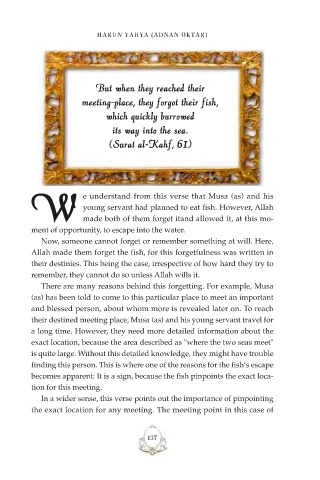 HARUN YAHYA (ADNAN OKTAR)
But when they reached their
meeting-place, they forgot their fish,
which quickly burrowed
its way into the sea.
(Surat al-Kahf, 61)
We understand from this verse that Musa (as) and his
young servant had planned to eat fish. However, Allah
made both of them forget itand allowed it, at this mo-
ment of opportunity, to escape into the water.
Now, someone cannot forget or remember something at will. Here,
Allah made them forget the fish, for this forgetfulness was written in
their destinies. This being the case, irrespective of how hard they try to
remember, they cannot do so unless Allah wills it.
There are many reasons behind this forgetting. For example, Musa
(as) has been told to come to this particular place to meet an important
and blessed person, about whom more is revealed later on. To reach
their destined meeting place, Musa (as) and his young servant travel for
a long time. However, they need more detailed information about the
exact location, because the area described as "where the two seas meet"
is quite large. Without this detailed knowledge, they might have trouble
finding this person. This is where one of the reasons for the fish's escape
becomes apparent: It is a sign, because the fish pinpoints the exact loca-
tion for this meeting.
In a wider sense, this verse points out the importance of pinpointing
the exact location for any meeting. The meeting point in this case of
137